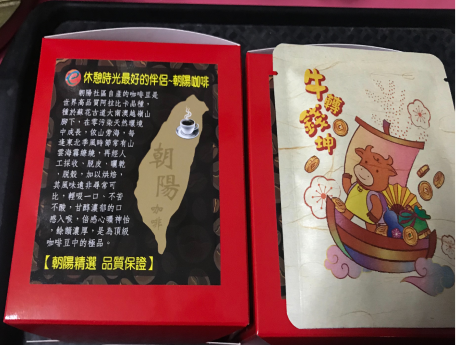 休憩時光最好的伴侶~朝陽咖啡
朝陽社區自產的咖啡豆是
世界高品質阿拉比卡品種,
種於蘇花古道大南澳越嶺山
腳下,在零污染天然環境
中成長,依山傍海,每
逢東北季風時節常有山
雲海霧繚繞,再經人
工採收、脫皮、曬乾
、脫殼,加以烘焙,
其風味遠非尋常可
比,輕啜一口,不苦
不酸,甘醇濃郁的口
感入喉,倍感心曠神怡
,餘韻濃厚,是為頂級
咖啡豆中的極品。
朝陽
咖啡
【朝陽精選 品質保證】
牛轉
錢坤